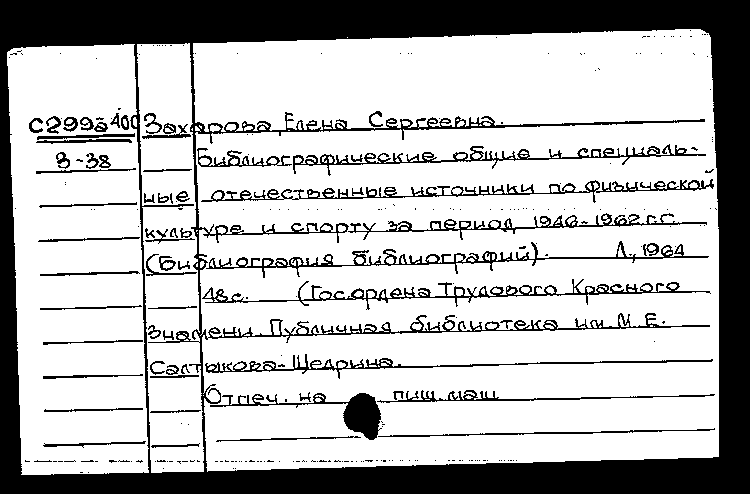 С299з400 Захарова, Елена Сергеевна.
З-38 Библиографические общие и специаль-
ные отечественные источники по физической
культуре и спорту за период 1946-1962 г.г.
(Библиография библиографий). Л., 1964
48 с. (Гос. ордена Трудового Красного
Знамени Публичная библиотека им. М. Е.
Салтыкова-Щедрина.
Отпеч. на пиш. маш